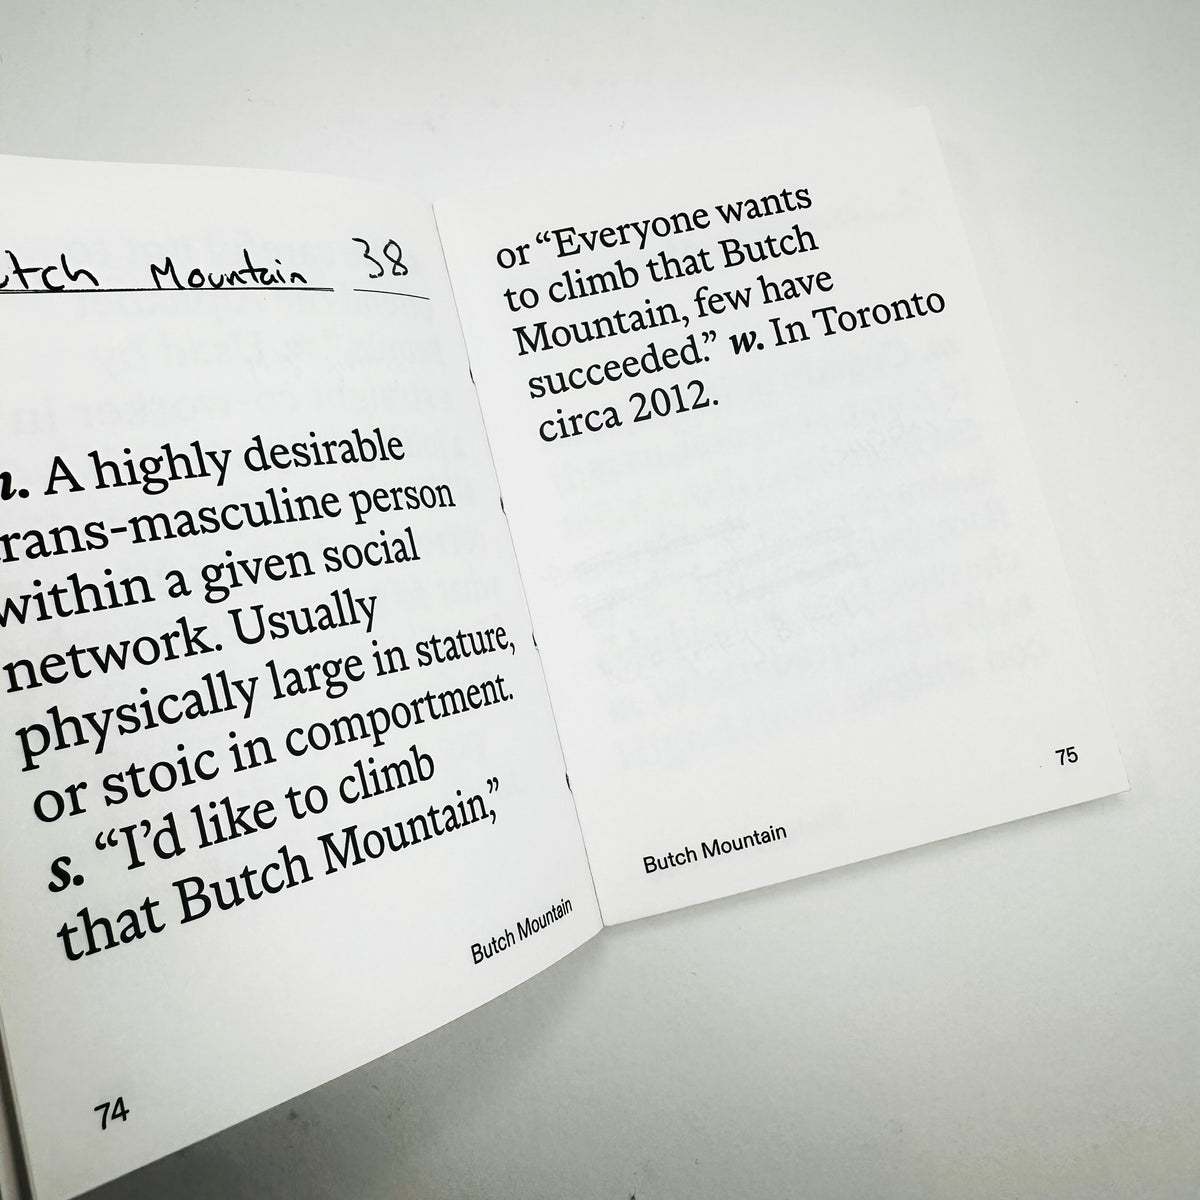 utch Mountain 38
n. A highly desirable
trans-masculine person
within a given social
network. Usually
physically large in stature,
or stoic in comportment.
s. “I’d like to climb
that Butch Mountain,”
Butch Mountain
74
or “Everyone wants
to climb that Butch
Mountain, few have
succeeded.” w. In Toronto
circa 2012.
75
Butch Mountain